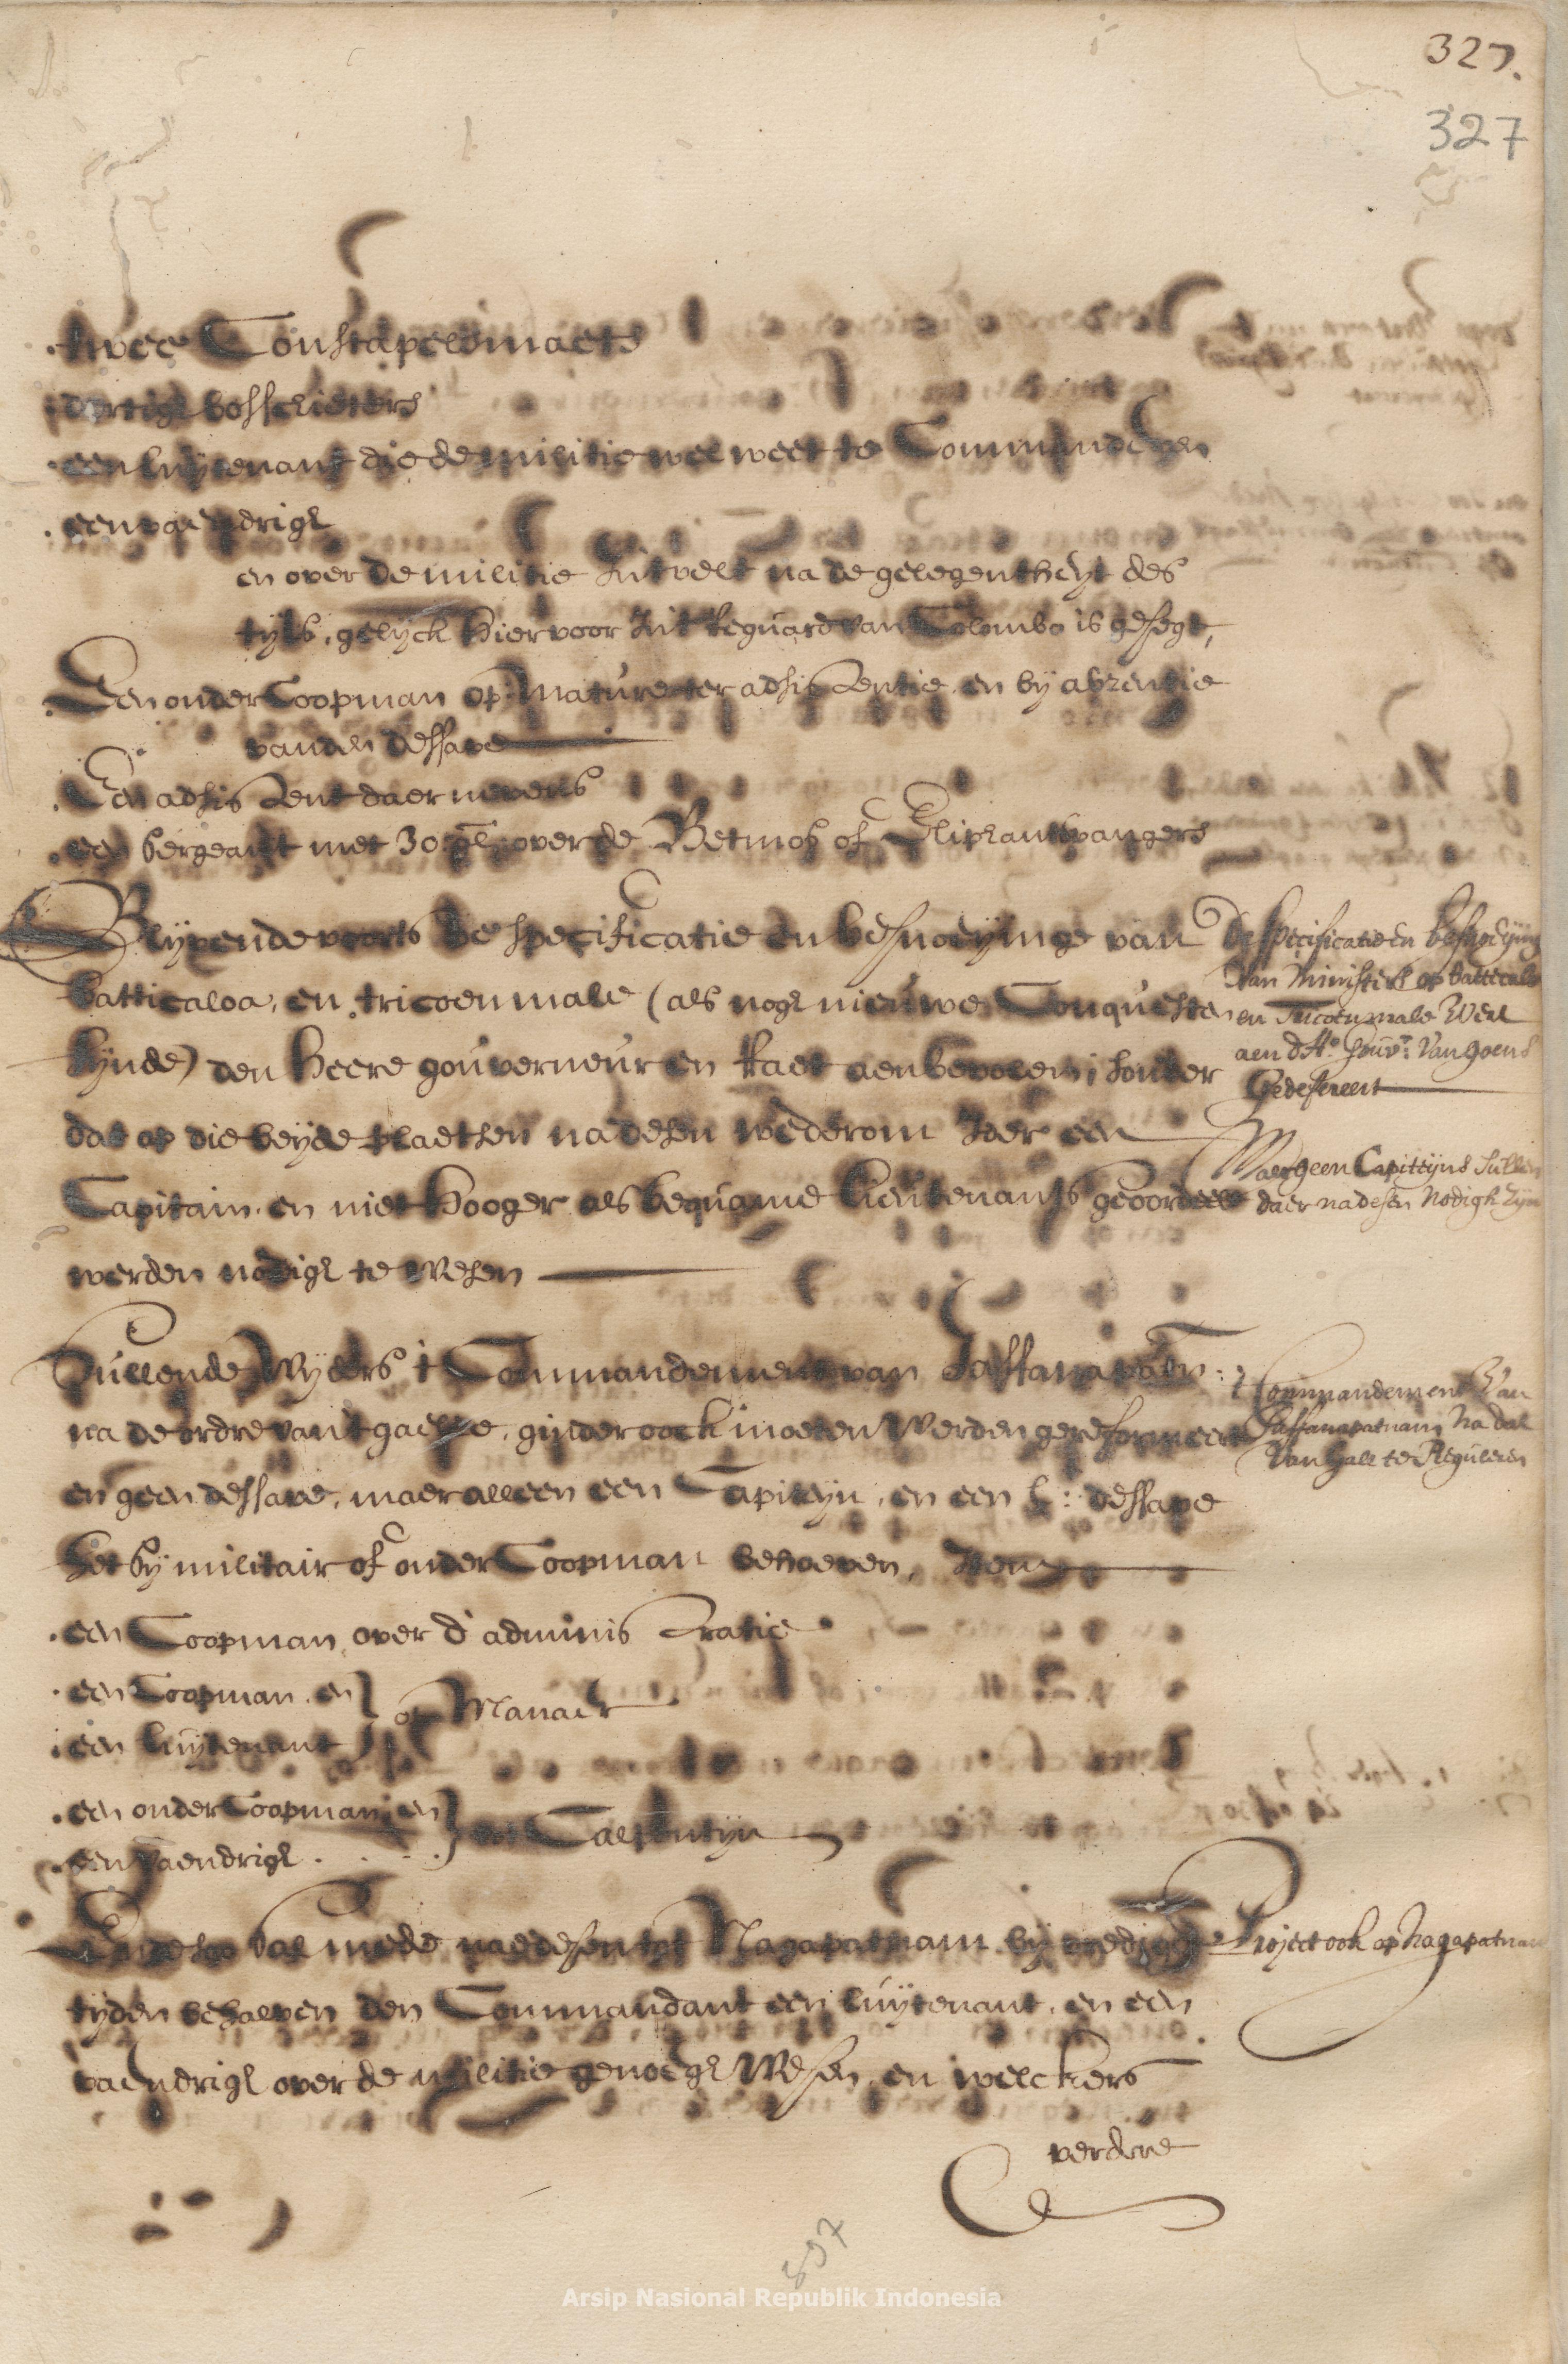 327.
327
twee Constapelsmaets
dertigh bosschieters
een luijtenant die de militie wel weet te Commanderen
een vaendrigh
en over de militie int velt na de gelegentheijt des
tijts, gelijck hier voor int reguard van Colombo is gesegt,
Een onder Coopman op Mature ter adsistentie en bij absentie
vanden dessave
Een adsistent daer nevens
een sergeant met 30 over de Betmos of Eliphantsvangers
Blijvende voorts de specificatie en besnoeijinge van
batticaloa, en tricoenmale (als nogh nieuwe Conquesten
sijnde) den heere gouverneur en raet aenbevolen, sonder
dat op die beijde plaetsen na desen wederom ider een
Capitain en niet hooger als bequame lieutenants geoordeelt
werden nodigh te wesen
De specificatie en besnoeijing
van Ministers op batticalo
en Tricoenmale wert
aen d'Hr. Gouvr. van Goens
Gedefereert
Maer geen Capiteijns sullen
daer na desen nodigh zijn
Sullende wijders 't Commandement van Jaffanapatn:
na de ordre van 't gaelse, ginder oock moeten werden gereformeert
en geen dessave, maer alleen een Capiteijn, en een L: dessave
het sij militair of onder Coopman behoeven, Item
't Commandement van
Jaffanapatnam na dat
van Gale te Reguleren
een Coopman over d'administratie
een Coopman en
een luijtenant
op Manaer
een onder Coopman en
een vaendrigh
op Calpentijn
Ende soo sal mede nae desen tot Nagapatnam bij vredige
tijden behalven den Commandant een luijtenant, en een
vaendrigh over de militie genoegh wesen, en welckers
Project ook op Nagapatnam
verdere
897
Arsip Nasional Republik Indonesia